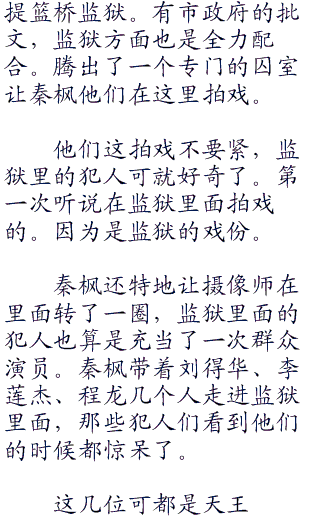 提篮桥监狱。有市政府的批
文，监狱方面也是全力配
合。腾出了一个专门的囚室
让秦枫他们在这里拍戏。
他们这拍戏不要紧，监
狱里的犯人可就好奇了。第
一次听说在监狱里面拍戏
的。因为是监狱的戏份。
秦枫还特地让摄像师在
里面转了一圈，监狱里面的
犯人也算是充当了一次群众
演员。秦枫带着刘得华、李
莲杰、程龙几个人走进监狱
里面，那些犯人们看到他们
的时候都惊呆了。
这几位可都是天王